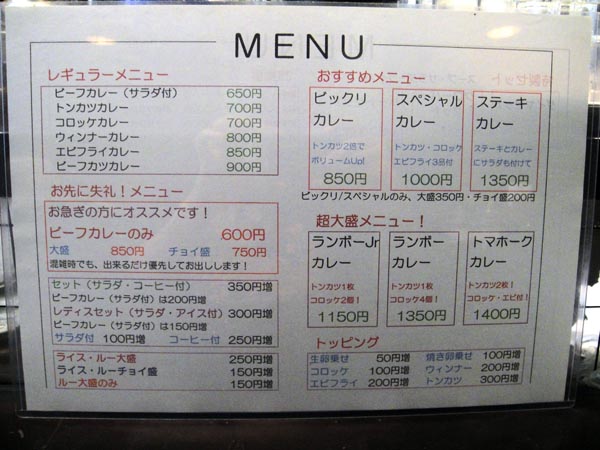 MENU
レギュラーメニュー
ビーフカレー（サラダ付） 650円
トンカツカレー 700円
コロッケカレー 700円
ウィンナーカレー 800円
エビフライカレー 850円
ビーフカツカレー 900円
お先に失礼！メニュー
お急ぎの方にオススメです！
ビーフカレーのみ 600円
大盛 850円 チョイ盛 750円
混雑時でも、出来るだけ優先してお出しします！
セット（サラダ・コーヒー付） 350円増
ビーフカレー（サラダ付）は200円増
レディスセット（サラダ・アイス付）300円増
ビーフカレー（サラダ付）は150円増
サラダ付 100円増 コーヒー付 250円増
ライス・ルー大盛 250円増
ライス・ルーチョイ盛 150円増
ルー大盛のみ 150円増
おすすめメニュー
ビックリ
カレー
トンカツ2倍で
ボリュームUp!
850円
スペシャル
カレー
トンカツ・コロッケ
エビフライ3品付
1000円
ステーキ
カレー
ステーキとカレー
にサラダも付けて
1350円
ビックリ/スペシャルのみ、大盛350円・チョイ盛200円
超大盛メニュー！
ランボーJr
カレー
トンカツ1枚
コロッケ2個！
1150円
ランボー
カレー
トンカツ1枚
コロッケ4個！
1350円
トマホーク
カレー
トンカツ2枚！
コロッケ・エビ付！
1400円
トッピング
生卵乗せ 50円増 焼き卵乗せ 100円増
コロッケ 100円増 ウィンナー 200円増
エビフライ 200円増 トンカツ 300円増